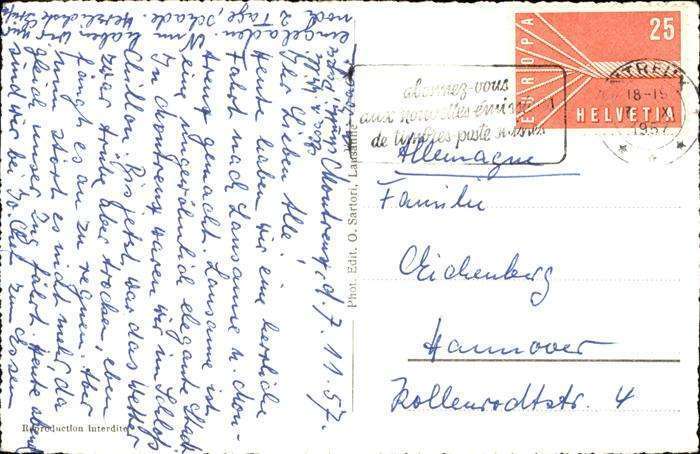 Montreux, d. 7.11.57.
Ihr Lieben Alle!
Heute haben wir eine herrliche
Fahrt nach Lausanne u. Mon-
treux gemacht. Lausanne ist
eine ungewöhnlich elegante Stadt.
In Montreux waren wir im Schloß
Chillon. Bis jetzt war das Wetter
zwar trübe aber trocken, eben
fängt es an zu regnen. Aber
nun stört es nicht mehr, da
gleich unser Zug fährt. Heute abend
sind wir bei zum Essen
eingeladen. Nun
noch 2 Tage, schade.
Herzlichste Grüße
Phot. Edit. O. Sartori, Lausanne
Reproduction interdite
EUROPA
25
HELVETIA
abonnez-vous
aux nouvelles émissions
de timbres-poste suisses
MONTREUX
18-19
7. XI
1957
Allemagne
Familie
Eichenberg
Hannover
Kollenrodtstr. 4